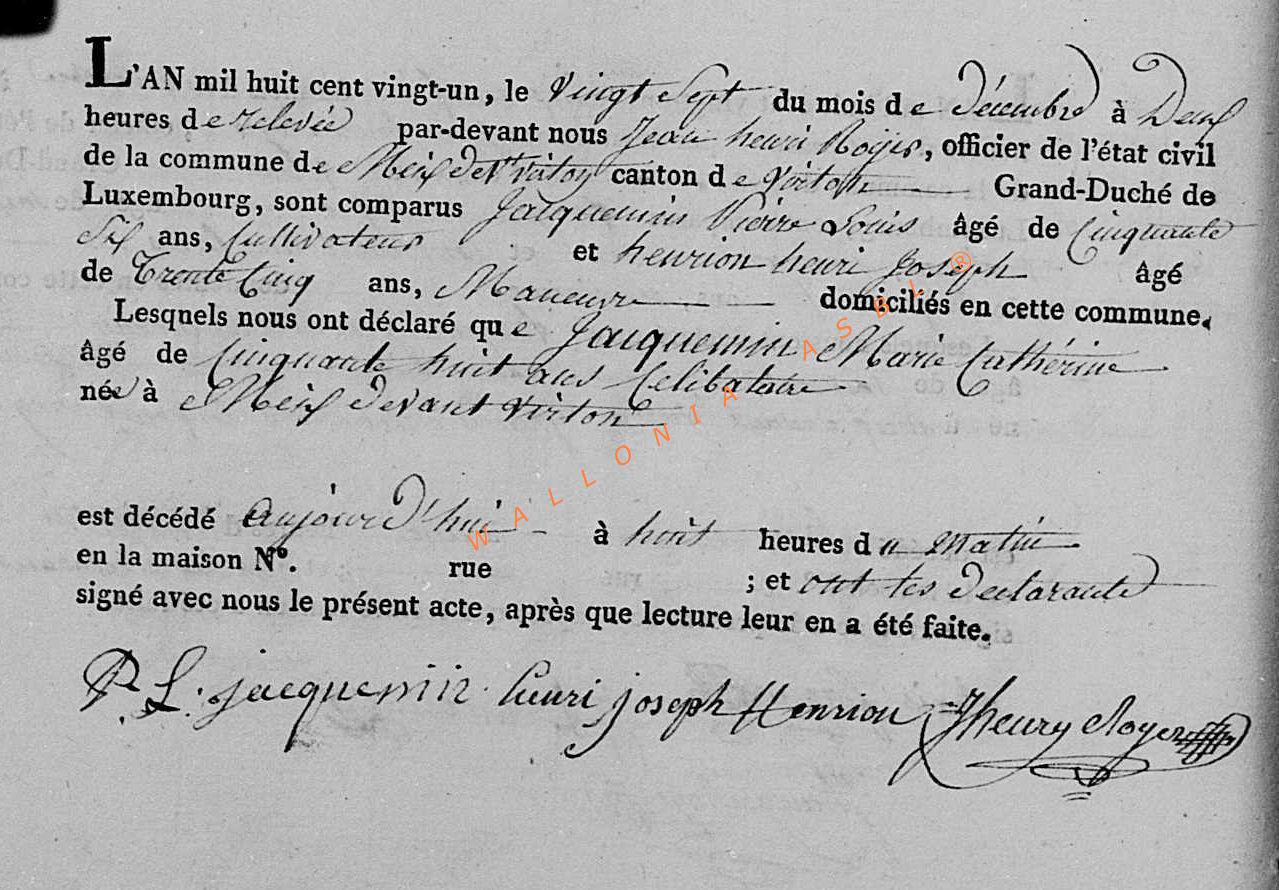 L'AN mil huit cent vingt-un, le Vingt Sept du mois de décembre à Deux
heures de relevée par-devant nous Jean henri Royer, officier de l'état civil
de la commune de Meix devt virton canton de virton Grand-Duché de
Luxembourg, sont comparus Jacquemin Pierre Louis âgé de Cinquante
Six ans, Cultivateur et henrion henri Joseph âgé
de Trente Cinq ans, Maneuvre domiciliés en cette commune.
Lesquels nous ont déclaré que Jacquemin Marie Cathérine
âgé de Cinquante huit ans Celibataire
née à Meix devant virton
est décédé aujourd'hui à huit heures du matin
en la maison N°. rue ; et ont les declarants
signé avec nous le présent acte, après que lecture leur en a été faite.
P. L. jacquemin henri joseph Henrion JHenry Royer
WALLONIA ASBL ®